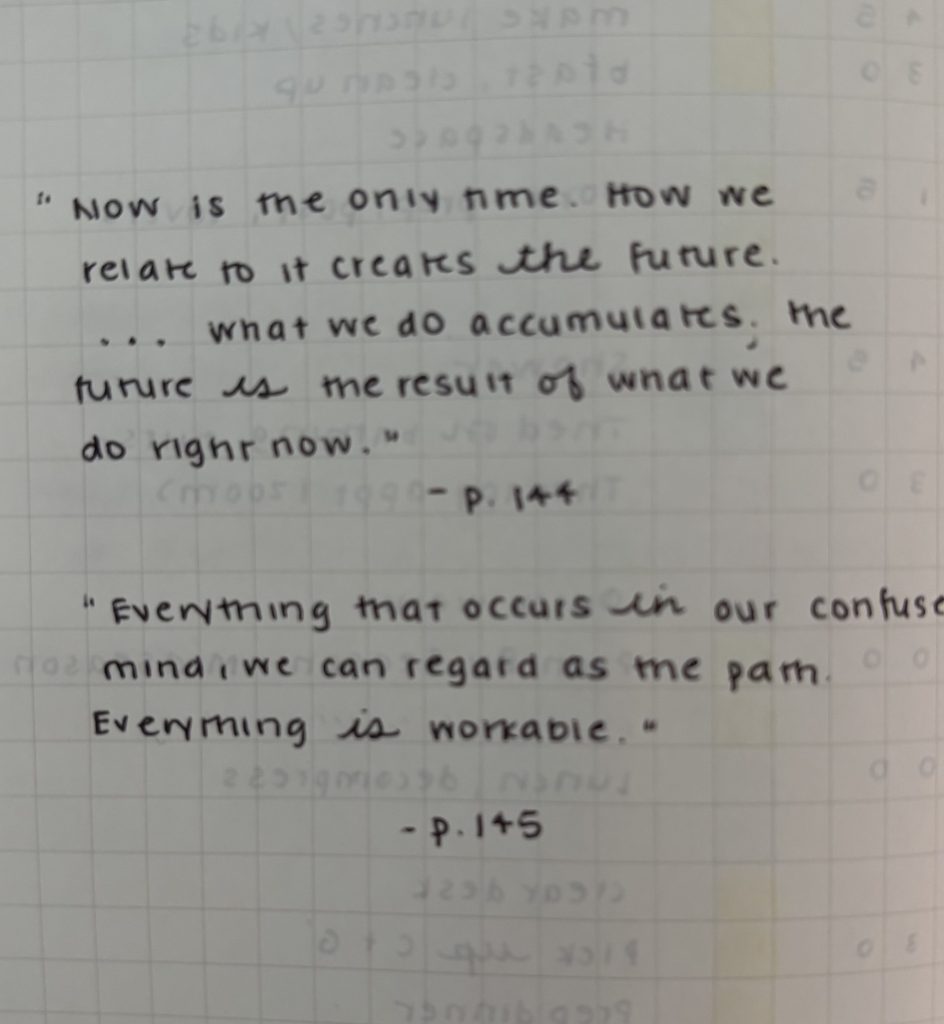 "Now is the only time. How we
relate to it creates the future.
... what we do accumulates; the
future is the result of what we
do right now."
- p. 144
"Everything that occurs in our confuse
mind, we can regard as the path.
Everything is workable."
- p. 145